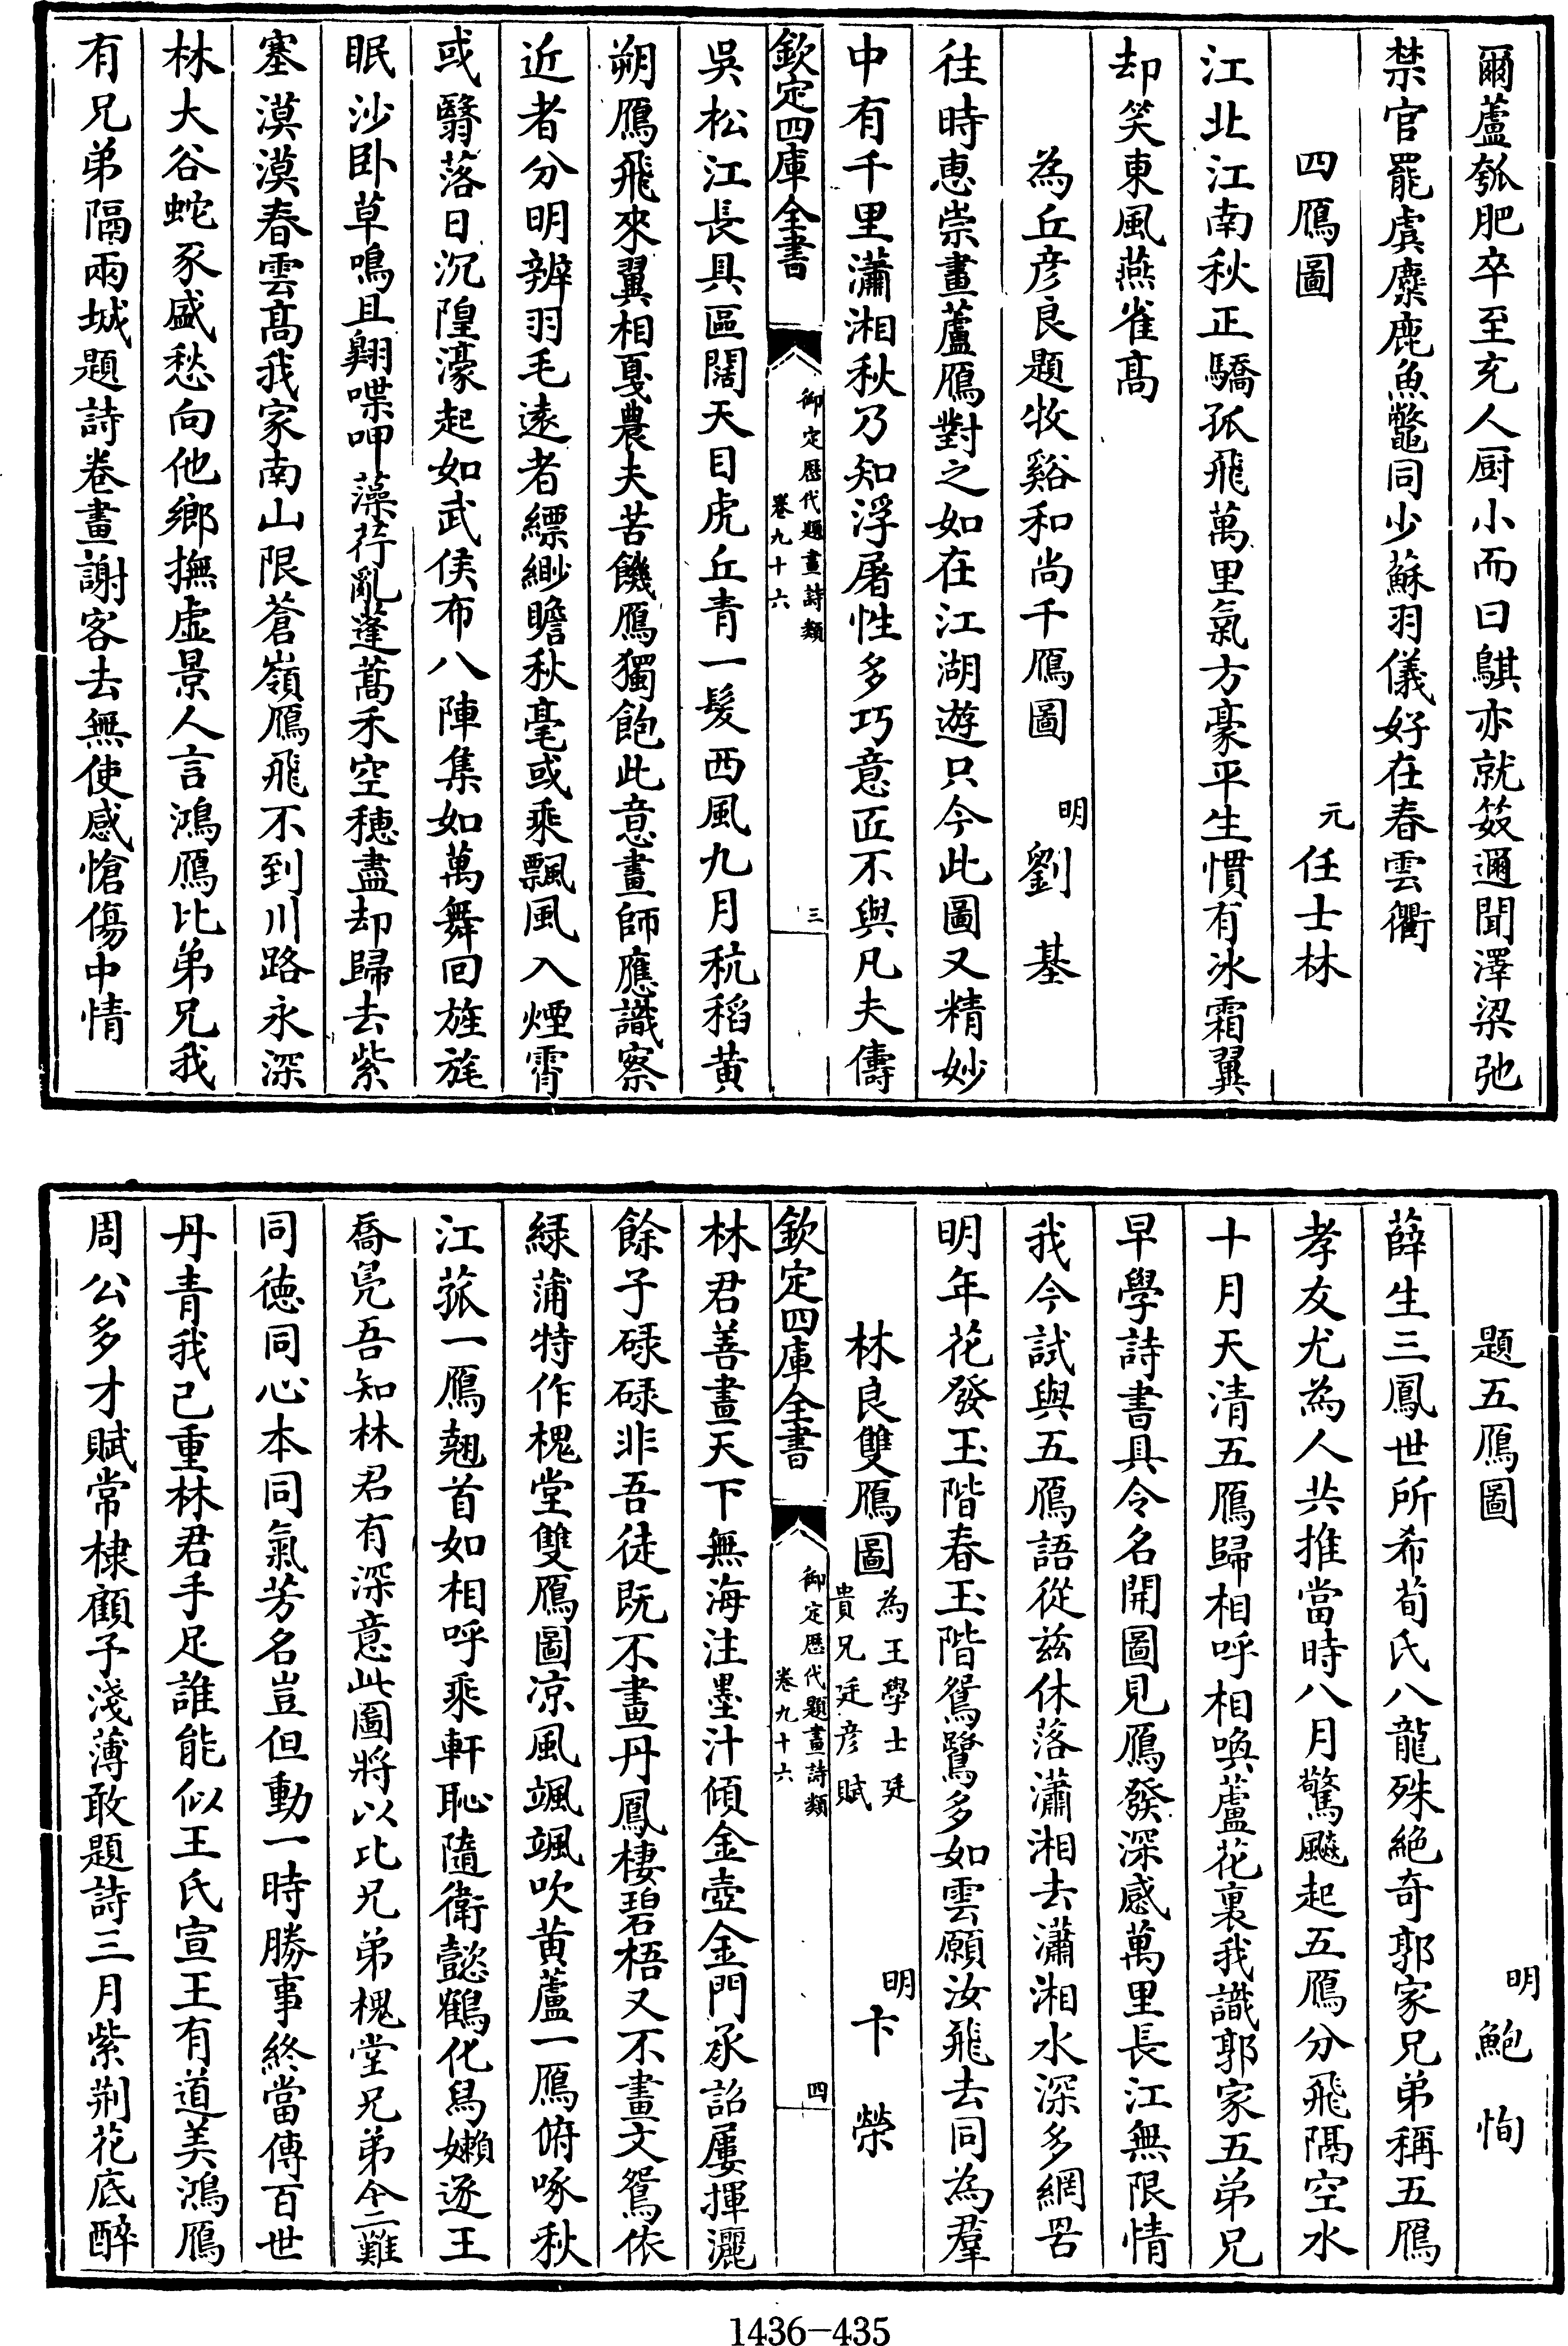 爾蘆瓠肥卒至充人厨小而曰鶀亦就笯邇聞澤梁弛
禁官罷虞麋鹿魚鼈同少蘇羽儀好在春雲衢
四鴈圖 元 任士林
江北江南秋正驕孤飛萬里氣方豪平生慣有冰霜翼
却笑東風燕雀髙
為丘彦良題牧谿和尚千鴈圖 明 劉基
往時惠崇畫蘆鴈對之如在江湖遊只今此圖又精妙
中有千里瀟湘秋乃知浮屠性多巧意匠不與凡夫儔
欽定四庫全書 御定歷代題畫詩類 卷九十六 三
吳松江長具區闊天目虎丘青一髮西風九月秔稻黃
朔鴈飛來翼相戛農夫苦饑鴈獨飽此意畫師應識察
近者分明辨羽毛逺者縹緲瞻秋毫或乘飄風入煙霄
或翳落日沉隍濠起如武侯布八陣集如萬舞回旌旄
眠沙卧草鳴且翺喋呷藻荇亂蓬蒿禾空穗盡却歸去紫
塞漠漠春雲髙我家南山限蒼嶺鴈飛不到川路永深
林大谷蛇豕盛愁向他鄉撫虛景人言鴻鴈比弟兄我
有兄弟隔兩城題詩卷畫謝客去無使感愴傷中情
題五鴈圖 明 鮑恂
薛生三鳳世所希荀氏八龍殊絶奇郭家兄弟稱五鴈
孝友尤為人共推當時八月驚飈起五鴈分飛隔空水
十月天清五鴈歸相呼相喚蘆花裏我識郭家五弟兄
早學詩書具令名開圖見鴈發深感萬里長江無限情
我今試與五鴈語從兹休落瀟湘去瀟湘水深多網罟
明年花發玉階春玉階鴛鷺多如雲願汝飛去同為羣
林良雙鴈圖 為王學士廷貴兄廷彦賦 明 卞榮
欽定四庫全書 御定歷代題畫詩類 卷九十六 四
林君善畫天下無海注墨汁傾金壺金門承詔屢揮灑
餘子碌碌非吾徒既不畫丹鳳棲碧梧又不畫文鴛依
緑蒲特作槐堂雙鴈圖凉風颯颯吹黄蘆一鴈俯啄秋
江菰一鴈翹首如相呼乘軒恥隨衛懿鶴化舄嬾逐王
喬鳬吾知林君有深意此圖將以比兄弟槐堂兄弟今二難
同徳同心本同氣芳名豈但動一時勝事終當傳百世
丹青我已重林君手足誰能似王氏宣王有道美鴻鴈
周公多才賦常棣顧予淺薄敢題詩三月紫荆花底醉
1436-435